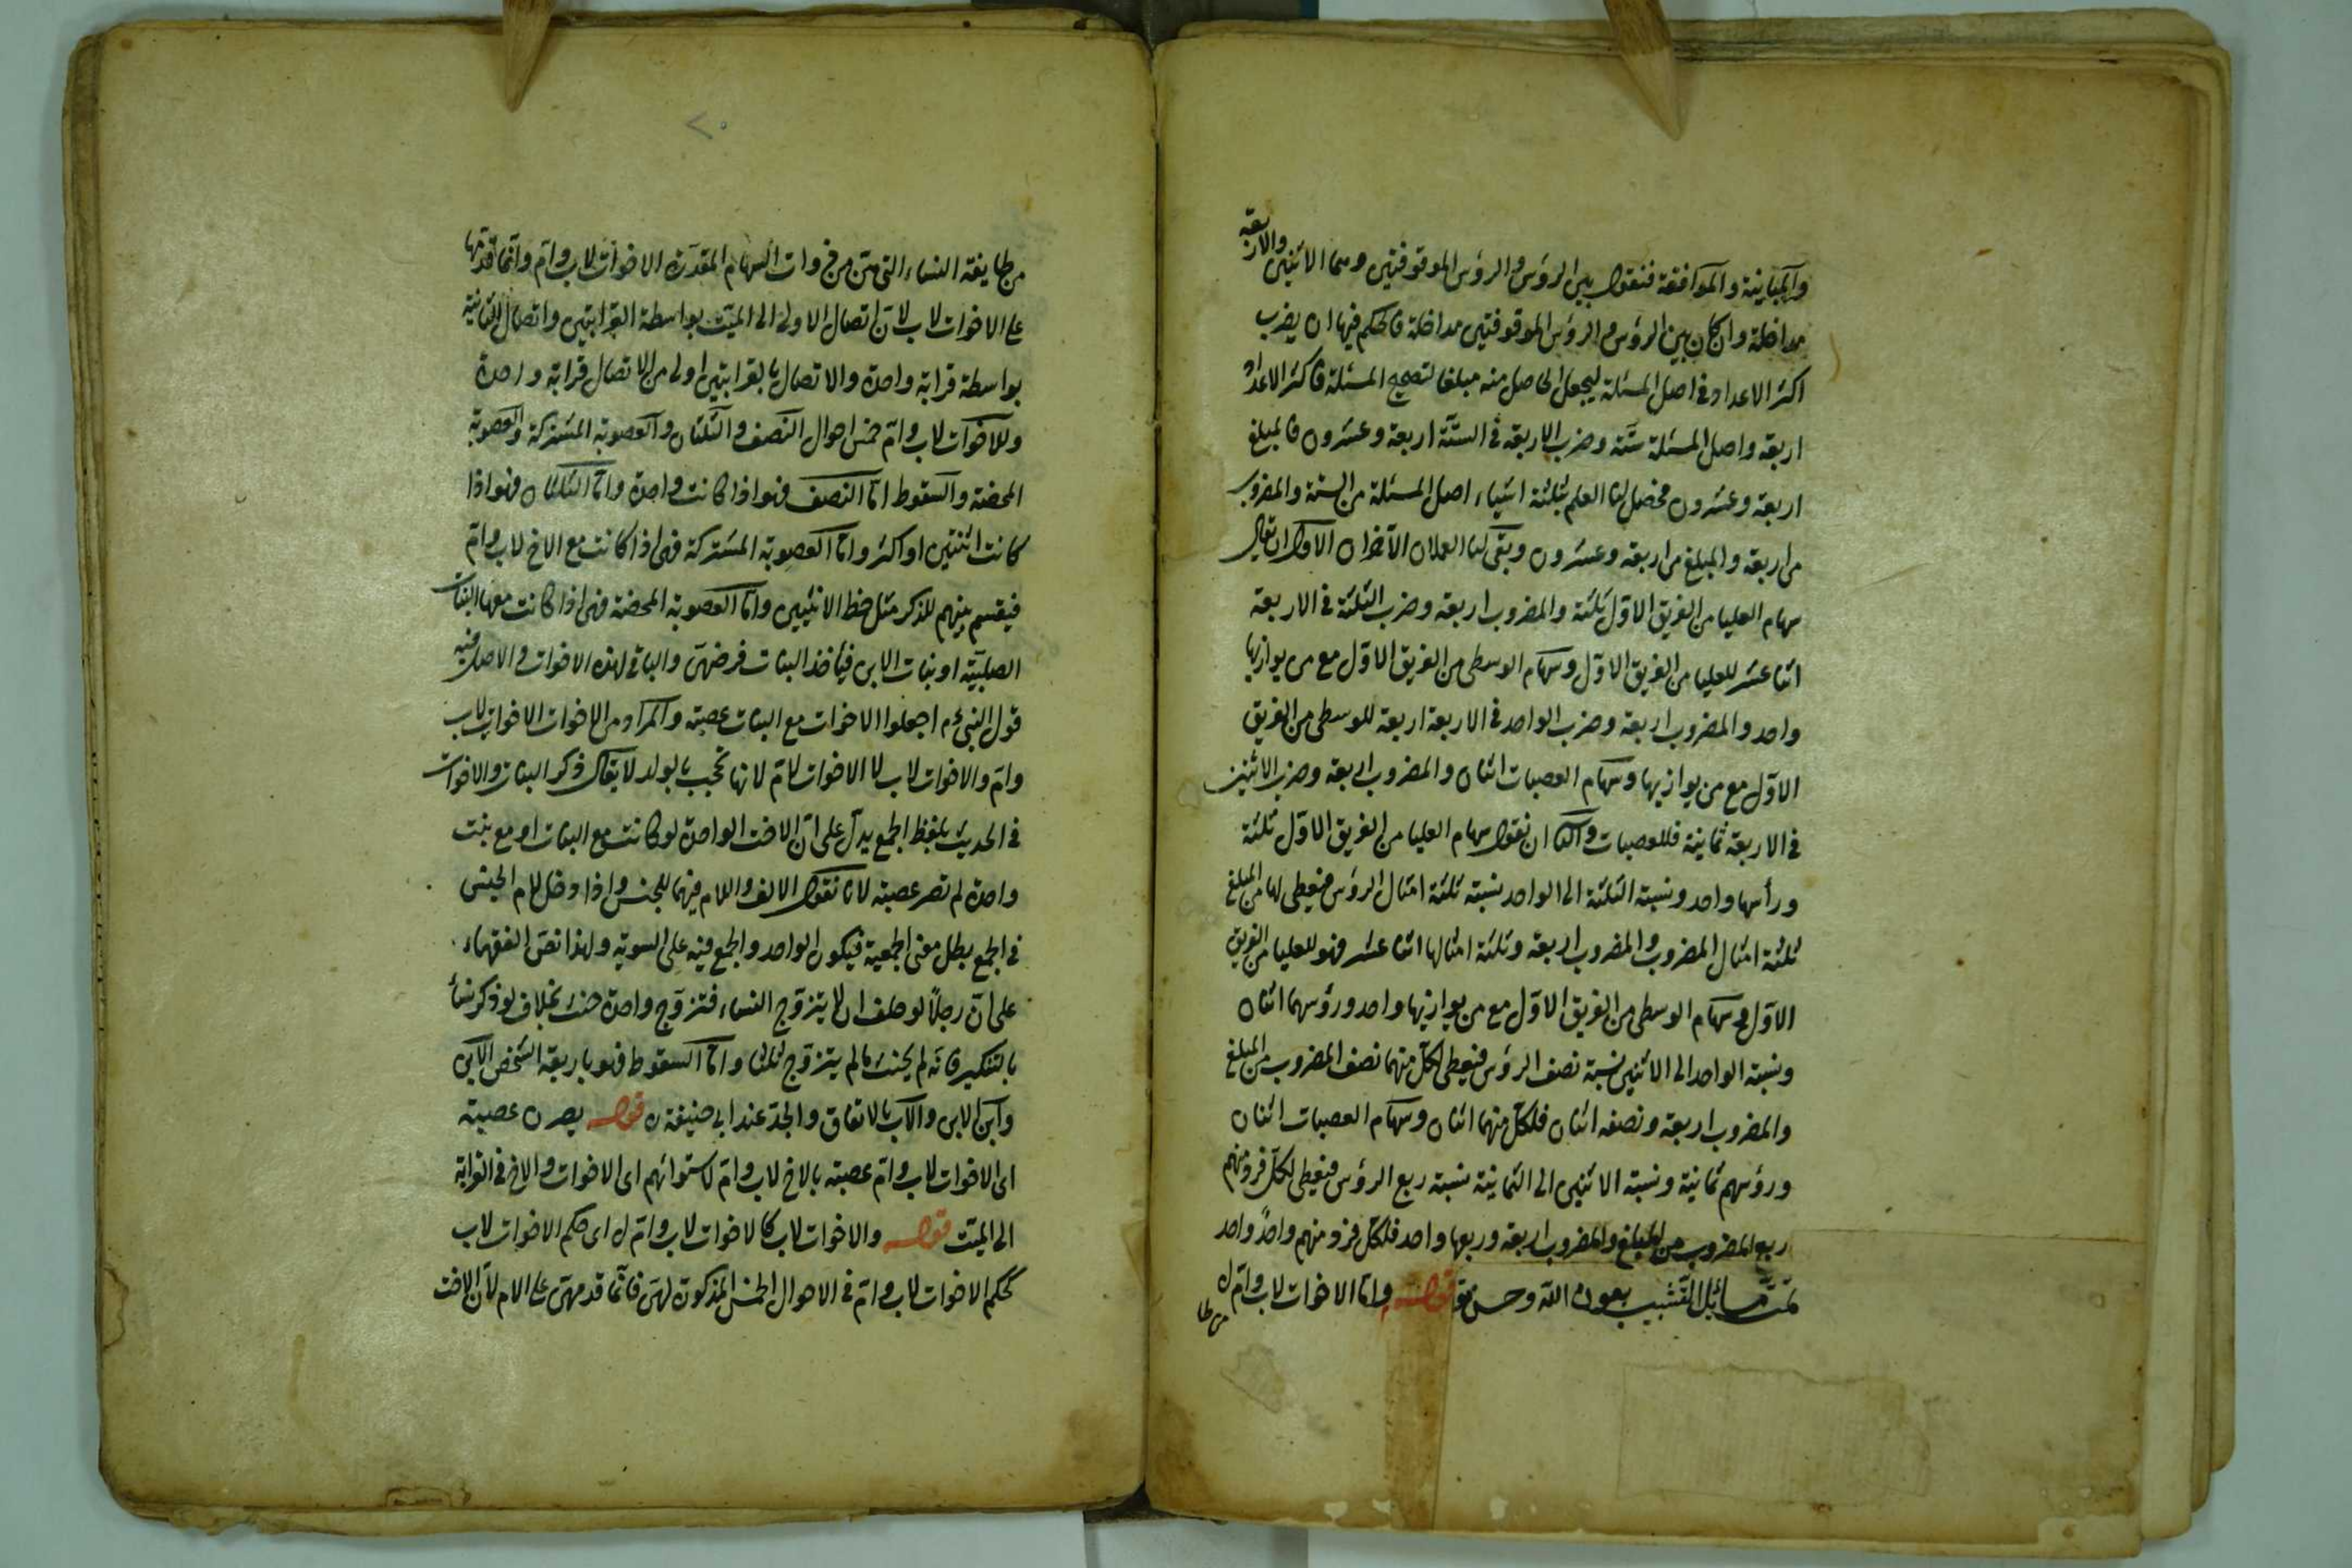 والمباينة والموافقة فنقول بين الرؤس والرؤس الموقوفتين وهما الاثنين والاربعة
مداخلة وان كان بين الرؤس والرؤس الموقوفتين مداخلة فالحكم فيها ان يضرب
اكثر الاعداد فى اصل المسئلة ليجعل الحاصل منه مبلغا لتصحيح المسئلة فاكثر الاعداد
اربعة واصل المسئلة ستة وضرب الاربعة فى الستة اربعة وعشرون فالمبلغ
اربعة وعشرون فحصل لنا العلم بثلثة اشياء اصل المسئلة من الستة والمضروب
من اربعة والمبلغ من اربعة وعشرون وبقى لنا العملان الآخران الاول ان يقال
سهام العليا من الفريق الاول ثلثة والمضروب اربعة وضرب الثلثة فى الاربعة
اثنا عشر للعليا من الفريق الاول وسهام الوسطى من الفريق الاول مع من يوازيها
واحد والمضروب اربعة وضرب الواحد فى الاربعة اربعة للوسطى من الفريق
الاول مع من يوازيها وسهام العصبات اثنان والمضروب اربعة وضرب الاثنين
فى الاربعة ثمانية فللعصبات والثانى ان نقول سهام العليا من الفريق الاول ثلثة
ورأسها واحد ونسبة الثلثة الى الواحد نسبة ثلثة امثال الرؤس فيعطى لها من المبلغ
ثلثة امثال المضروب والمضروب اربعة وثلثة امثالها اثنا عشر فهو للعليا من الفريق
الاول وسهام الوسطى من الفريق الاول مع من يوازيها واحد ورؤسهما اثنان
ونسبة الواحد الى الاثنين نسبة نصف الرؤس فيعطى لكل منهما نصف المضروب من المبلغ
والمضروب اربعة ونصفه اثنان فلكل منهما اثنان وسهام العصبات اثنان
ورؤسهم ثمانية ونسبة الاثنين الى الثمانية نسبة ربع الرؤس فيعطى لكل فرد منهم
ربع المضروب من المبلغ والمضروب اربعة وربعها واحد فلكل فرد منهم واحد واحد
تمت مسائل التشبيب بعون الله وحسن قوله واما الاخوات لاب وام
من طا
من طايفة النساء التى هن من ذوات السهام المقدرة الاخوات لاب وام وانما قدمها
على الاخوات لاب لان اتصال الاولى الى الميت بواسطة القرابتين واتصال الثانية
بواسطة قرابة واحدة والاتصال بالقرابتين اولى من الاتصال قرابة واحدة
وللاخوات لاب وام خمس احوال النصف والثلثان والعصوبة المشتركة والعصوبة
المحضة والسقوط اما النصف فهو اذا كانت واحدة واما الثلثان فهو اذا
كانت اثنتين او اكثر واما العصوبة المشتركة فهى اذا كانت مع الاخ لاب وام
فيقسم بينهم للذكر مثل حظ الانثيين واما العصوبة المحضة فهى اذا كانت معها البنات
الصلبية او بنات الابن فيأخذ البنات فرضهن والباقى لهذه الاخوات والاصل فيه
قول النبى ءم اجعلوا الاخوات مع البنات عصبة والمراد من الاخوات الاخوات لاب
وام والاخوات لاب لا الاخوات لام لانها تحجب بالولد لا يقال ذكر البنات والاخوات
فى الحديث بلفظ الجمع يدل على ان الاخت الواحدة لو كانت مع البنات او مع بنت
واحدة لم تصر عصبة لانا نقول الالف واللام فيهما للجنس واذا دخل لام الجنس
فى الجمع بطل معنى الجمعية فيكون الواحد والجمع فيه على السوية ولهذا نص الفقهاء
على ان رجلا لو حلف ان لا يتزوج النساء فتزوج واحدة حنث بخلاف لو ذكر نساء
بالتنكير فانه لم يحنث ما لم يتزوج ثلثا واما السقوط فهو باربعة الشخص الابن
وابن الابن والاب بالاتفاق والجد عند ابى حنيفة ره قوله يصرن عصبة
اى الاخوات لاب وام عصبة بالاخ لاب وام لاستوائهم اى الاخوات والاخ فى القرابة
الى الميت قوله والاخوات لاب كالاخوات لاب وام اى حكم الاخوات لاب
كحكم الاخوات لاب وام فى الاحوال الخمس المذكورة لهن فانما قدمهن على الام لان الاخت